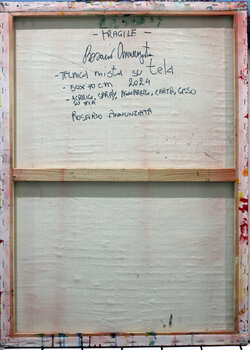 - FRAGILE -
Rosario Annunziata
- TECNICA MISTA SU TELA
- 50X70 CM 2024
- ACRILICO, SPRAY, ACQUARELLO, CARTA, GESSO
SU TELA
ROSARIO ANNUNZIATA